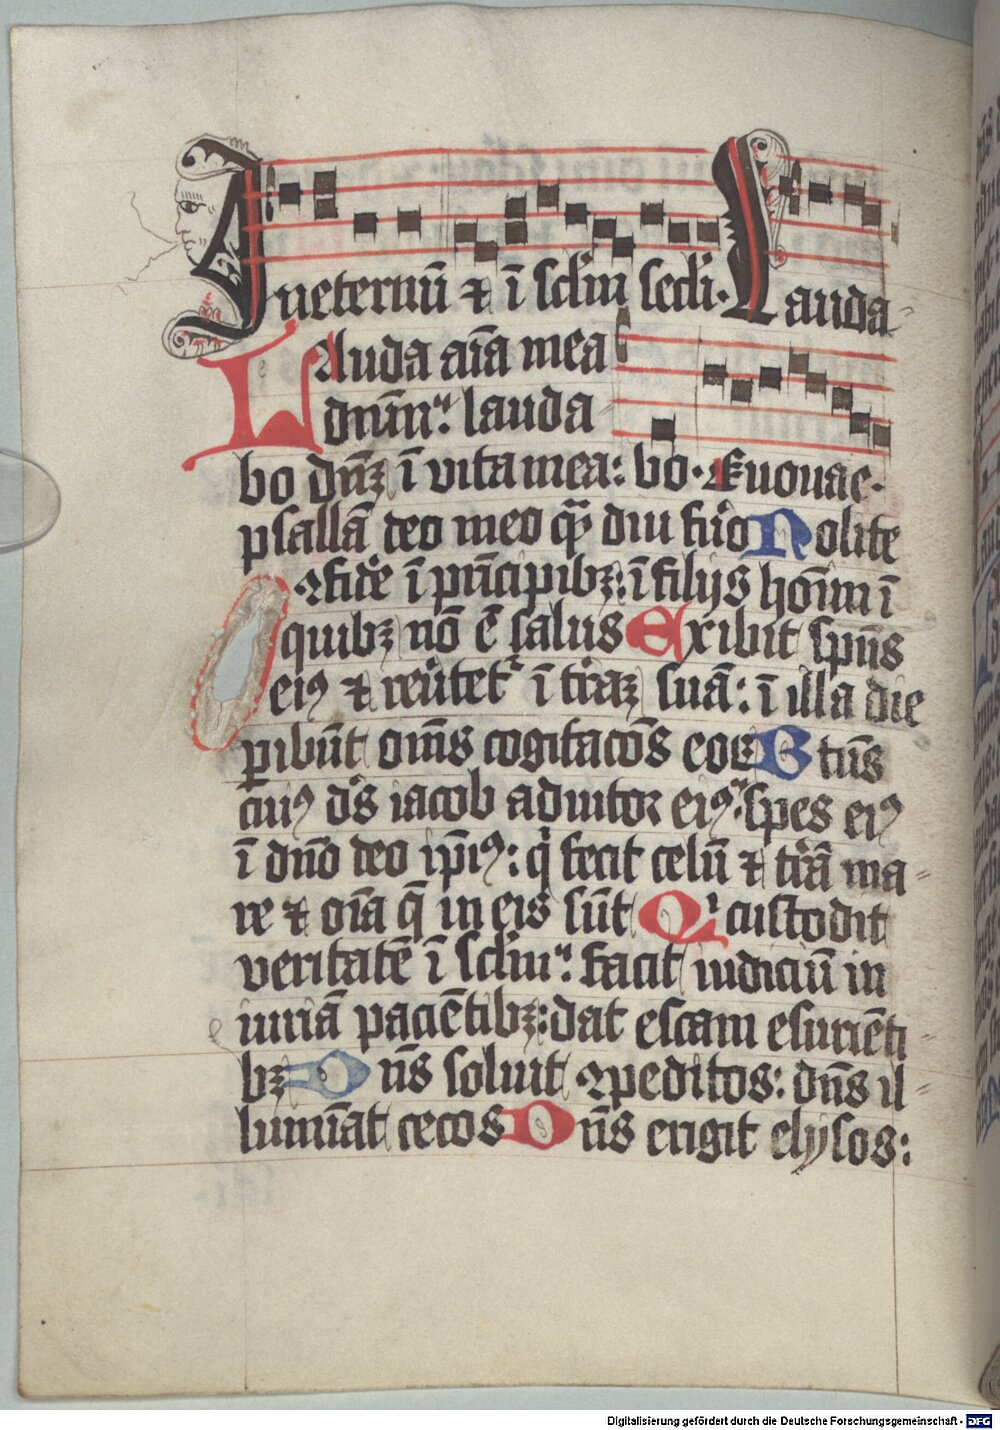 Ineternū ⁊ ī sclm̄ secli. Lauda-
LAuda aīa mea
dnm̄: lauda
bo dn̄ꝫ ī vita mea: bo. Euouae.
psallā deo meo qͣ̄diu fuͦo Nolite
ꝯfidͤe ī pn̄cipibꝫ: ī filijs hoīm ī
quibꝫ nō ē salus Exibit spūs
eiꝰ ⁊ reūtet᷑ ī tr̄aꝫ suā: ī illa die
ꝑibūt om̄s cogitacōs eoꝝ Btūs
cuiꝰ dͤs iacob adiutor eiꝰ: spes eiꝰ
ī dn̄o deo ip̄iꝰ: qͥ fecit celū ⁊ tr̄ā ma-
re ⁊ oīa q̄ in eis sūt Qͥ custodit
veritatē ī sclm̄: facit iudiciū in
iuriā pacientibꝫ: dat escam esuriēti-
bꝫ Dn̄s soluit ꝯpeditos: dn̄s il-
lumīat cecos Dn̄s erigit elysos:
Digitalisierung gefördert durch die Deutsche Forschungsgemeinschaft - DFG